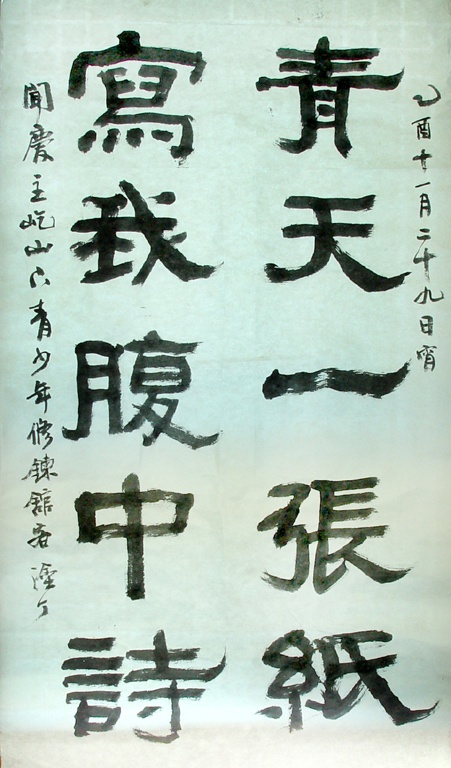 乙酉十一月二十九日宵
青天一張紙
寫我腹中詩
聞慶主屹山下青少年修鍊館